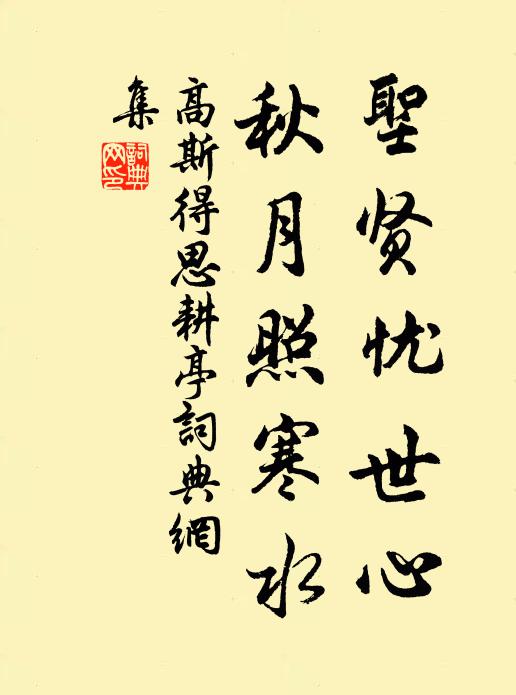 聖贤忧世心
秋月照寒水
高斯得思耕亭詞典網
集
詞典網